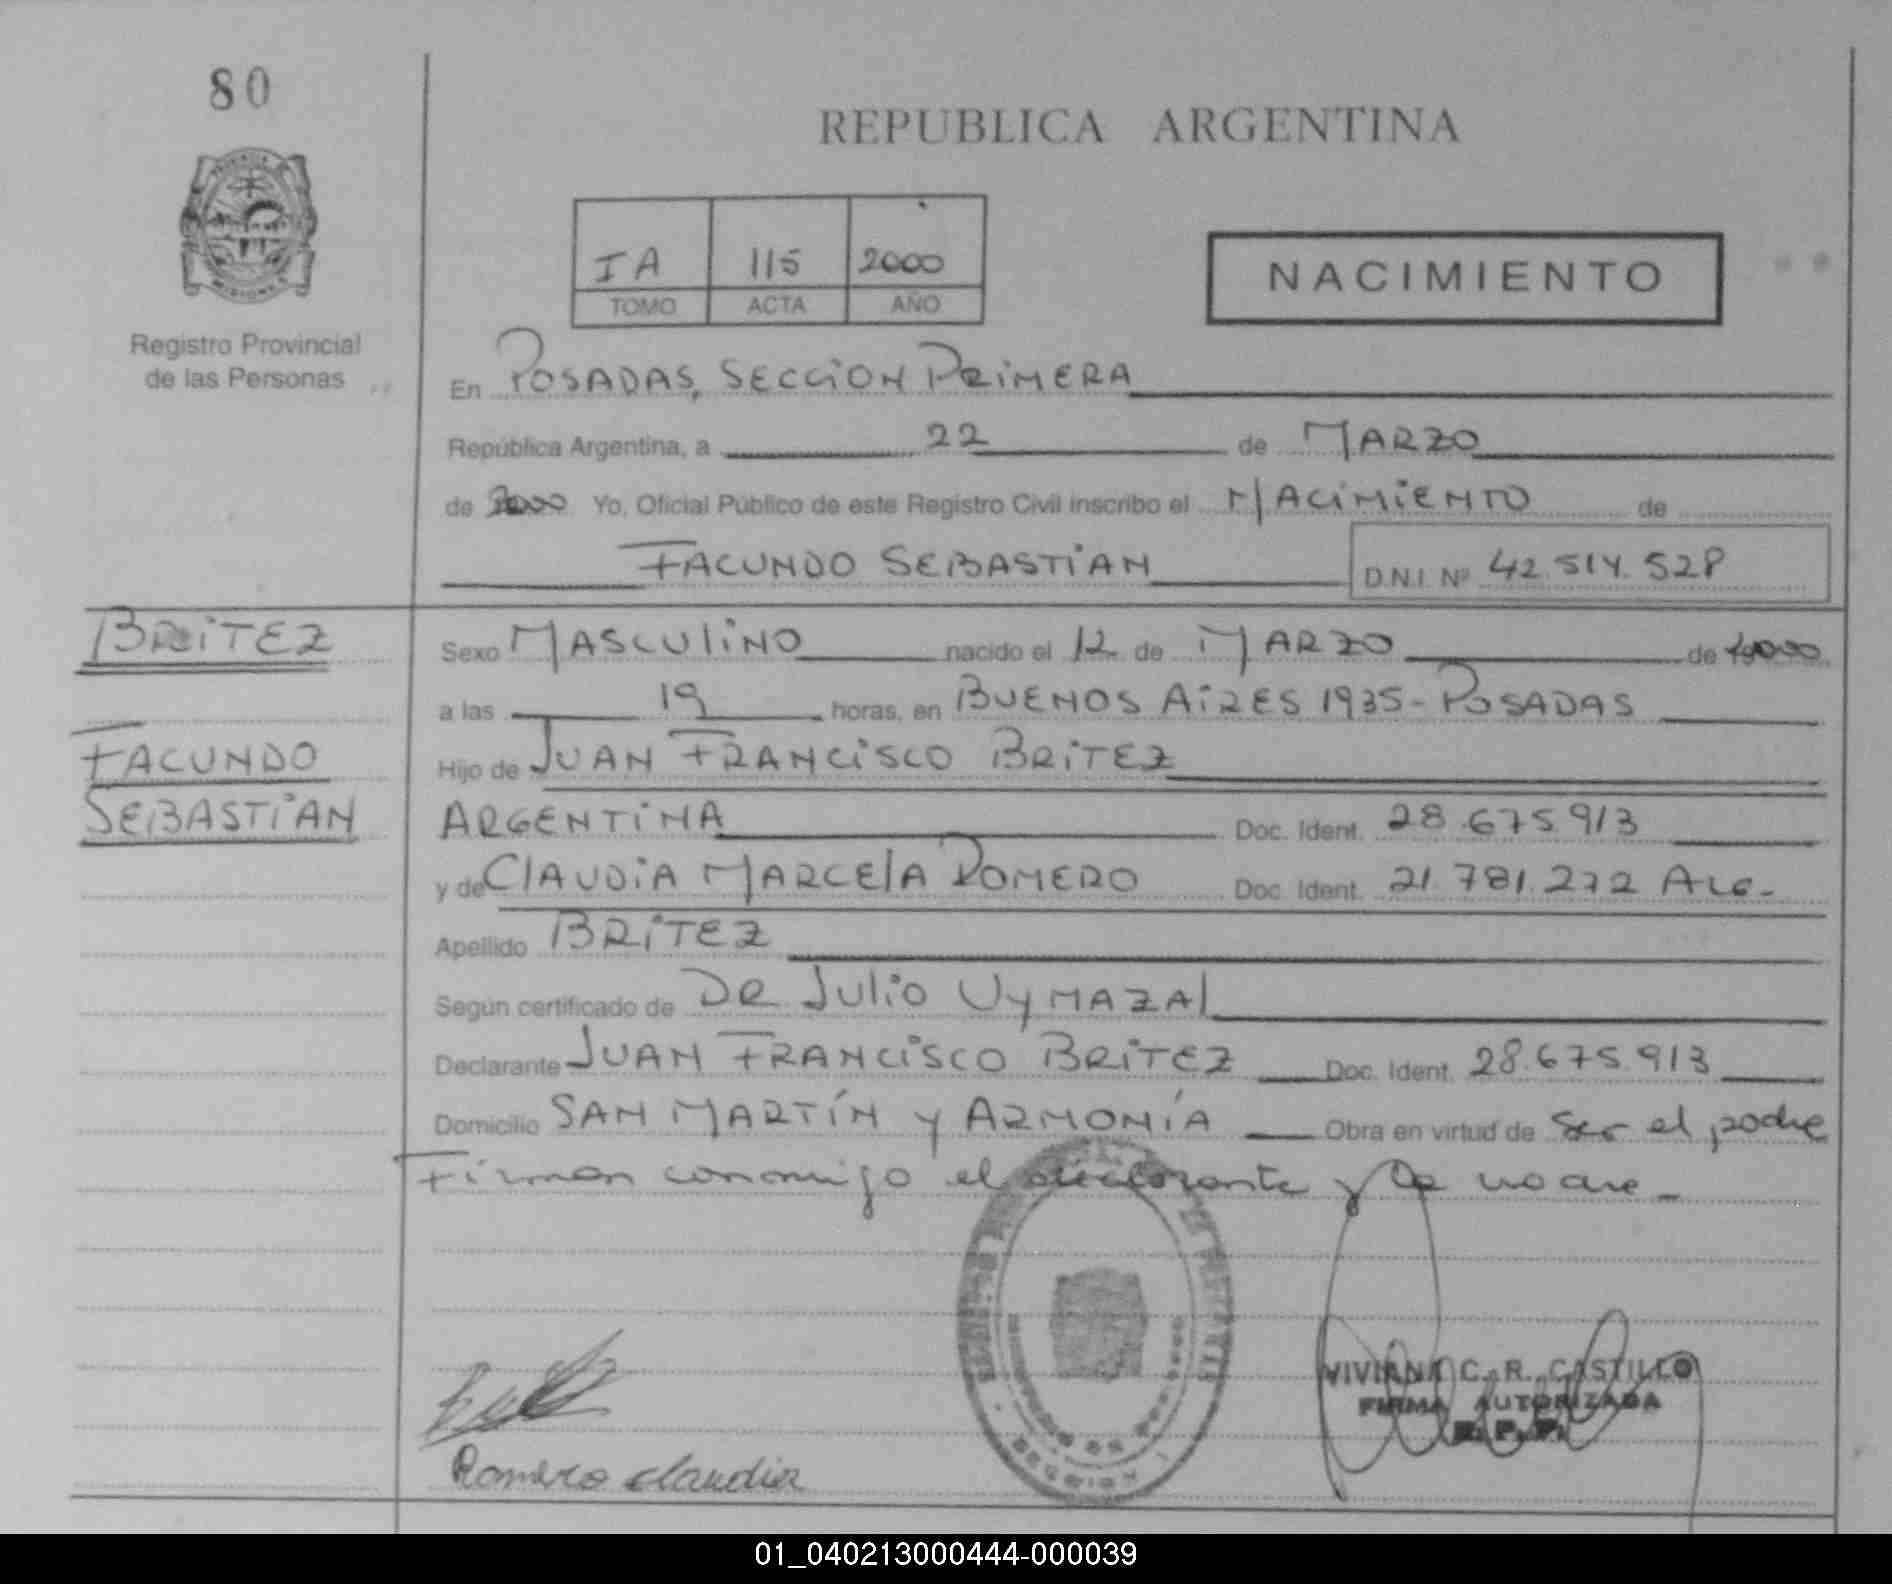 80
REPUBLICA ARGENTINA
MISIONES
Registro Provincial
de las Personas
IA 115 2000
TOMO ACTA AÑO
NACIMIENTO
En POSADAS, SECCION PRIMERA
República Argentina, a 22 de MARZO
de 2000 Yo, Oficial Público de este Registro Civil inscribo el NACIMIENTO de
FACUNDO SEBASTIAN D.N.I. Nº 42.514.528
BRITEZ
Sexo MASCULINO nacido el 12 de MARZO de 2000
a las 19 horas, en BUENOS AIRES 1935-POSADAS
FACUNDO
Hijo de JUAN FRANCISCO BRITEZ
SEBASTIAN
ARGENTINA Doc. Ident. 28.675.913
y de CLAUDIA MARCELA ROMERO Doc. Ident. 21.781.272
Apellido BRITEZ
Según certificado de DR JULIO VYMAZAL
Declarante JUAN FRANCISCO BRITEZ Doc. Ident. 28.675.913
Domicilio SAN MARTÍN y ARMONÍA Obra en virtud de Ser el padre
Firman conmigo el declarante y la madre
VIVIANA C. R. CASTILLO
FIRMA AUTORIZADA
R. P. P.
Romero Claudia
SECCION 1
01_040213000444-000039